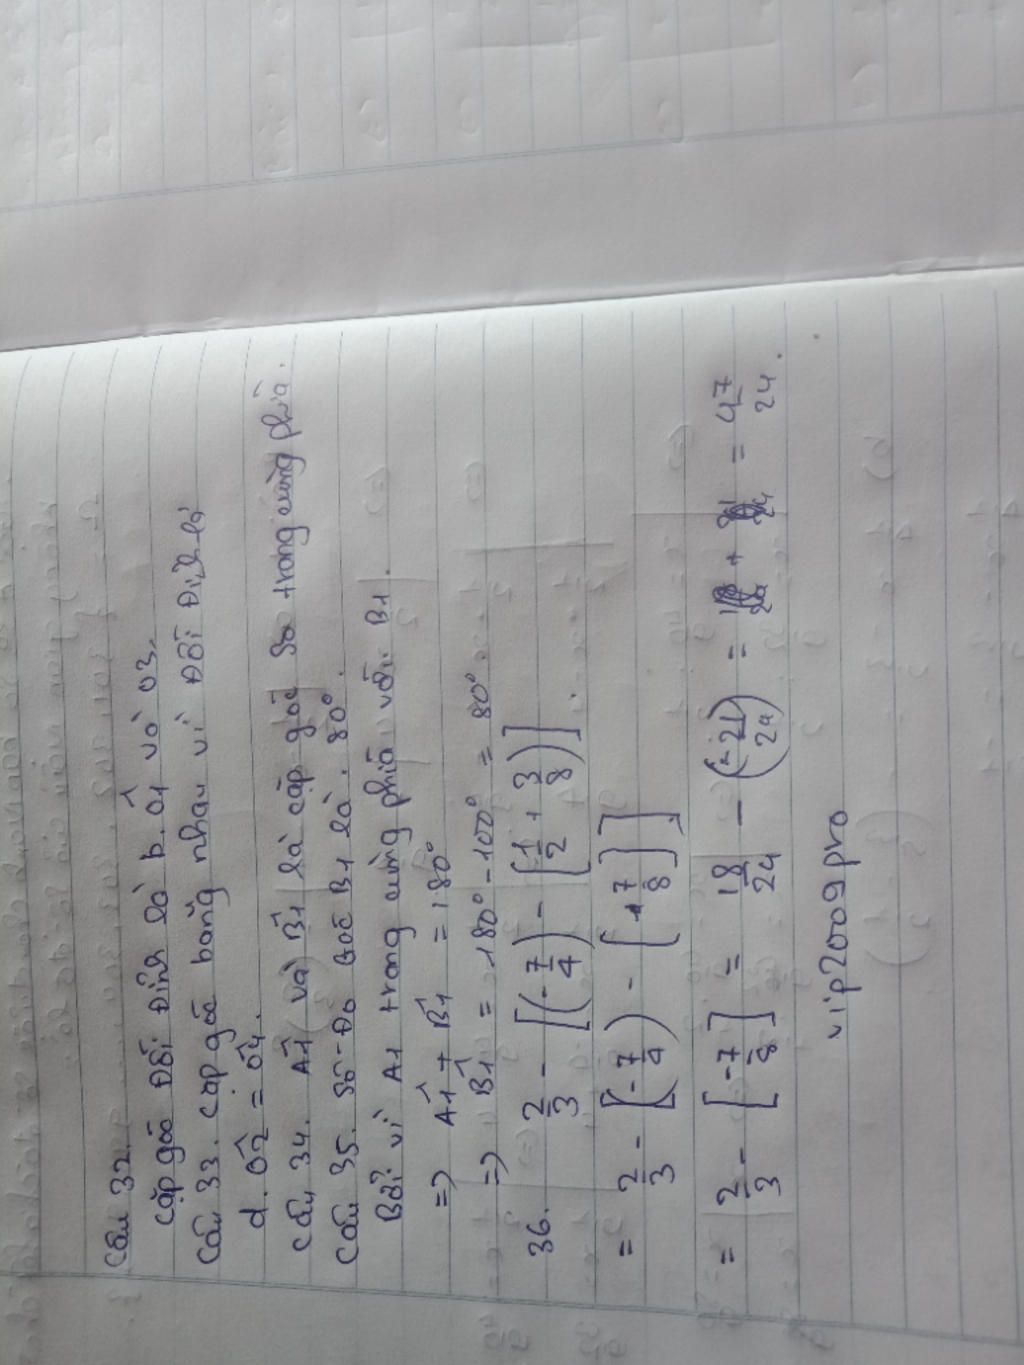 Câu 32.
cặp góc đối đỉnh là b. Ô1 và Ô3.
Câu 33. cặp góc bằng nhau vì đối đỉnh là
d. Ô2 = Ô4.
Câu 34. Â1 và B̂1 là cặp góc so trong cùng phía.
Câu 35. số đo góc B1 là. 80°.
Bởi vì A1 trong cùng phía với B1.
=> Â1 + B̂1 = 180°
=> B̂1 = 180° - 100° = 80°.
36. 2/3 - [(-7/4) - [1/2 + 3/8)].
= 2/3 - [(-7/4) - [+7/8]]
= 2/3 - [-7/8] = 18/24 - (-21/24) = + = 47/24.
vip2009pro